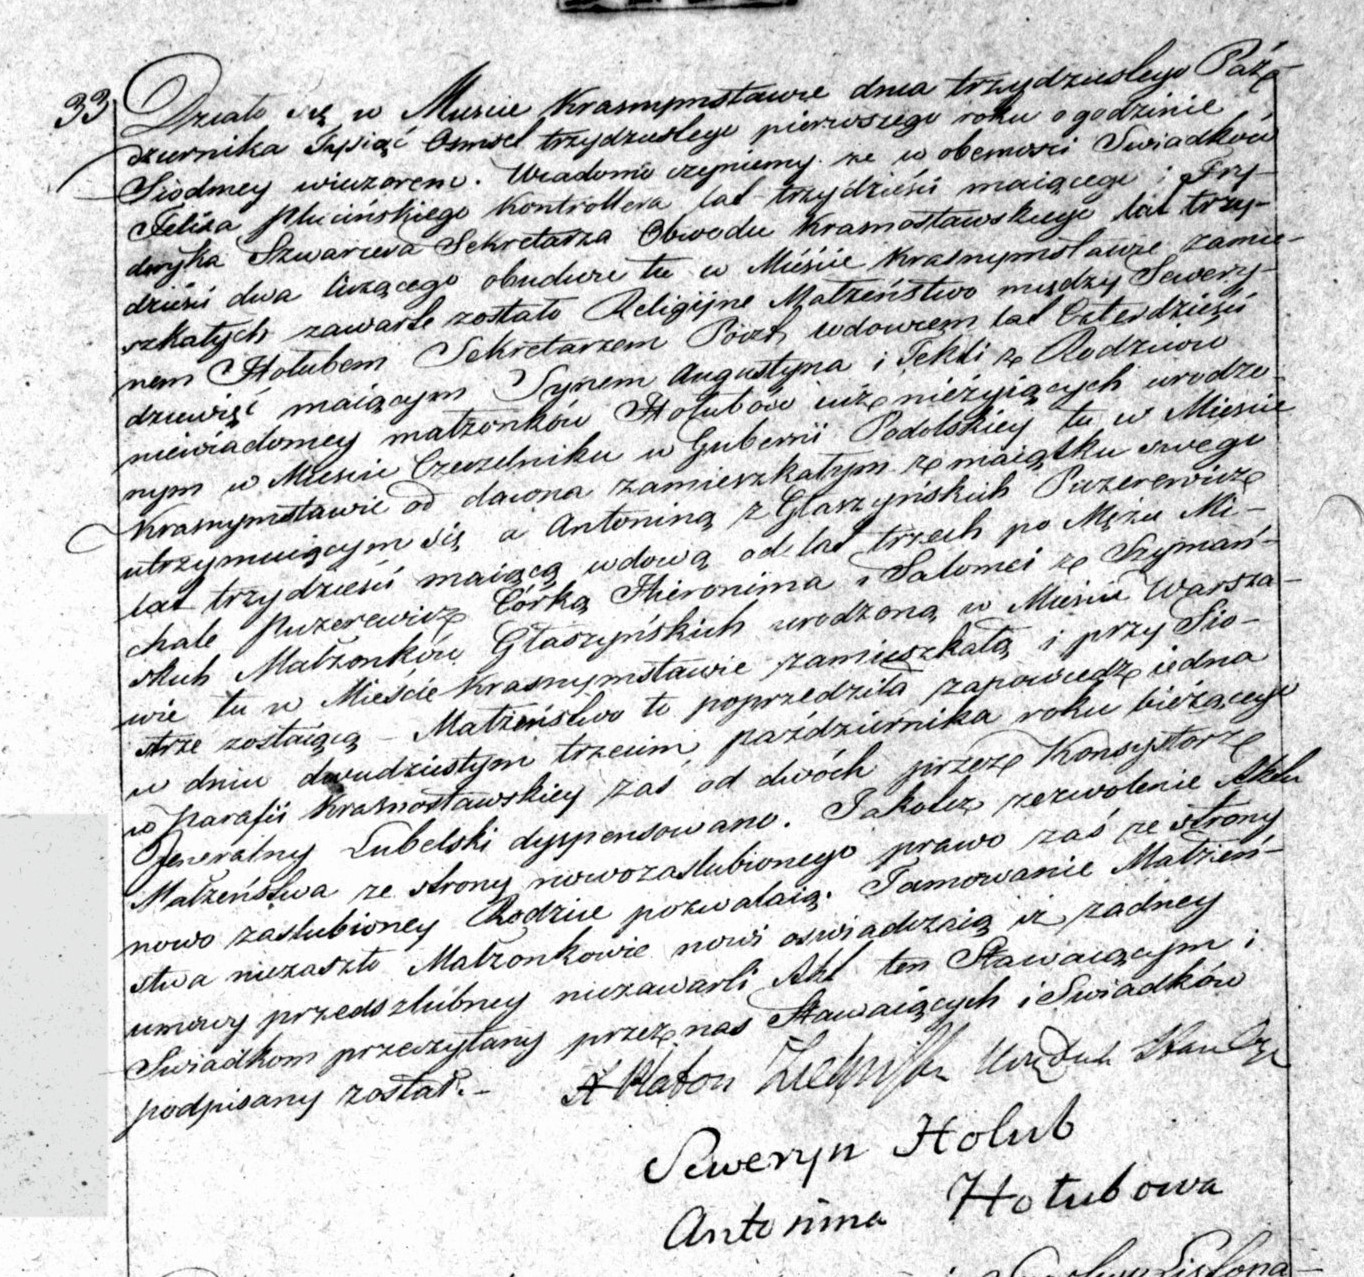 33
Działo się w Mieście Krasnymstawie dnia trzydziestego Paź-
dziernika Tysiąć Ośmset trzydziestego pierwszego roku o godzinie
Siódmey wieczorem. Wiadomo czyniemy że w obecności Swiadków
Felixa Plucińskiego Kontrollera lat trzydzieści maiącego i Fry-
deryka Szwarca Sekretarza Obwodu Krasnostawskiego lat trzy-
dzieści dwa liczącego obudwu tu w Mieście Krasnymstawie zamie-
szkałych zawarte zostało Religijne Małżeństwo między Sewery-
nem Hołubem Sekretarzem Poczt wdowcem lat Czterdzieści
dziewięć maiącym Synem Augustyna i Tekli z Rodziców
niewiadomey małżonków Hołubów iuż nieżyiących urodzo-
nym w Mieście Czeczelniku w Gubernii Podolskiey tu w Mieście
Krasnymstawie od dawna zamieszkałym z maiątku swego
utrzymuiącym się a Antoniną z Głaszyńskich Puzerewicz
lat trzydzieści maiącą wdową od lat trzech po Mężu Mi-
chale Puzerewicz Córką Hieronima i Salomei z Szymań-
skich Małżonków Głaszyńskich urodzoną w Mieście Warsza-
wie tu w Mieście Krasnymstawie zamieszkałą i przy Sio-
strze zostaiącą – Małżeństwo to poprzedziła zapowiedź iedna
w dniu dwudziestym trzecim października roku bieżącego
w parafii Krasnostawskiey zaś od dwóch przez Konsystorz
Jeneralny Lubelski dyspensowano. Jakoteż zezwolenie Aktu
Małżeństwa ze strony nowozaślubionego prawo zaś ze strony
nowo zaślubioney Rodzice pozwalaią. Tamowanie Małżeń-
stwa niezaszło Małżonkowie nowi oswiadczaią iż żadney
umowy przedszlubney niezawarli Akt ten Stawaiącym i
Swiadkom przeczytany przez nas Stawaiących i Swiadków
podpisany został. –
X Platon
Seweryn Holub
Antonina Hołubowa